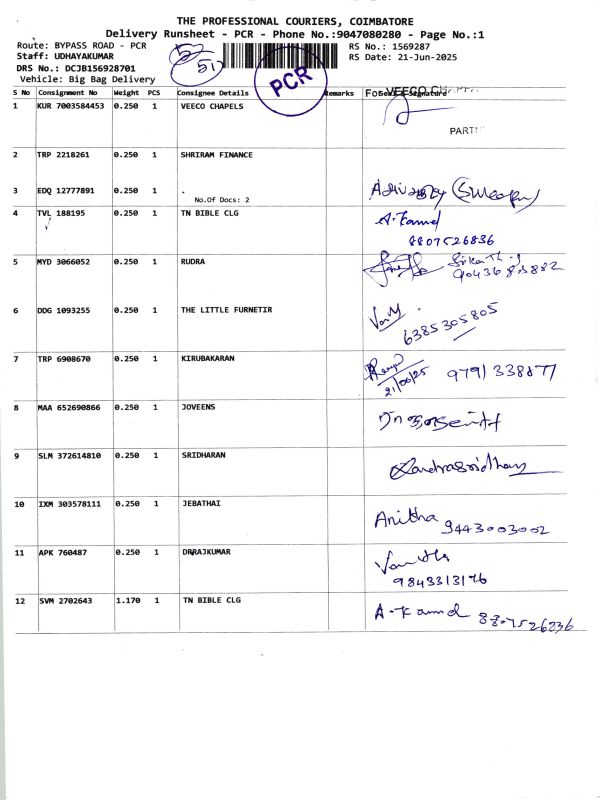 THE PROFESSIONAL COURIERS, COIMBATORE
Delivery Runsheet - PCR - Phone No.:9047080280 - Page No.:1
Route: BYPASS ROAD - PCR
Staff: UDHAYAKUMAR
DRS No.: DCJB156928701
Vehicle: Big Bag Delivery
52
51
PCR
RS No.: 1569287
RS Date: 21-Jun-2025
S No Consignment No Weight PCS Consignee Details Remarks
For VEECO CHAPEL
1 KUR 7003584453 0.250 1 VEECO CHAPELS
2 TRP 2218261 0.250 1 SHRIRAM FINANCE
3 EDQ 12777891 0.250 1 .
No.Of Docs: 2
4 TVL 188195 0.250 1 TN BIBLE CLG A-Kamel
8807526836
5 MYD 3066052 0.250 1 RUDRA
6 DDG 1093255 0.250 1 THE LITTLE FURNETIR
6385305805
7 TRP 6908670 0.250 1 KIRUBAKARAN
21/06/25 9791338877
8 MAA 652690866 0.250 1 JOVEENS
9 SLM 372614810 0.250 1 SRIDHARAN
10 IXM 303578111 0.250 1 JEBATHAI Anitha 9443003002
11 APK 760487 0.250 1 DRRAJKUMAR
9843313176
12 SVM 2702643 1.170 1 TN BIBLE CLG A-Kamel 8807526836